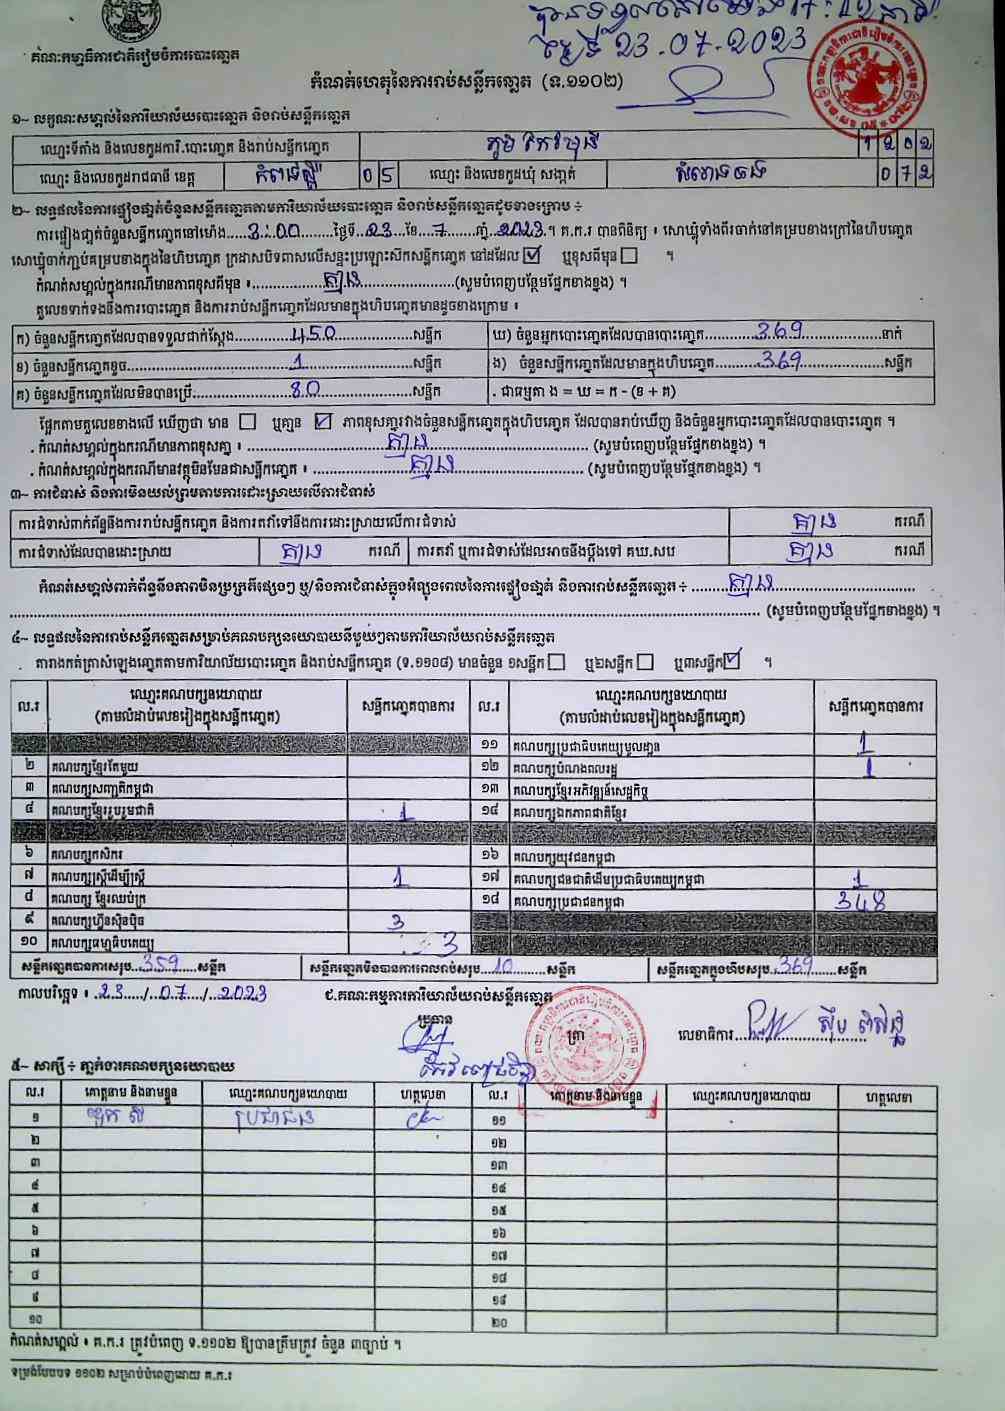 17:12
23.07.2023
គណៈកម្មាធិការជាតិរៀបចំការបោះឆ្នោត
កំណត់ហេតុនៃការរាប់សន្លឹកឆ្នោត (ទ.១១០២)
១~ លក្ខណៈសម្គាល់នៃការិយាល័យបោះឆ្នោត និងរាប់សន្លឹកឆ្នោត
ឈ្មោះទីតាំង និងលេខកូដការិ.បោះឆ្នោត និងរាប់សន្លឹកឆ្នោត ភូមិ 1202
ឈ្មោះ និងលេខកូដរាជធានី ខេត្ត កំពង់ស្ពឺ 05 ឈ្មោះ និងលេខកូដឃុំ សង្កាត់ 072
២~ លទ្ធផលនៃការផ្ទៀងផ្ទាត់ចំនួនសន្លឹកឆ្នោតតាមការិយាល័យបោះឆ្នោត និងរាប់សន្លឹកឆ្នោតដូចខាងក្រោម ÷
ការផ្ទៀងផ្ទាត់ចំនួនសន្លឹកឆ្នោតនៅម៉ោង 3:00 ថ្ងៃទី 23 ខែ 7 ឆ្នាំ 2023 ។ គ.ក.រ បានពិនិត្យ ៖ សោឃ្លុំទាំងពីរចាក់នៅគម្របខាងក្រៅនៃហិបឆ្នោត
សោឃ្លុំចាក់ភ្ជាប់គម្របខាងក្នុងនៃហិបឆ្នោត ក្រដាសបិទពាសលើសន្ទះប្រឡោះស៊កសន្លឹកឆ្នោត នៅដដែល ☑ ឬខុសពីមុន ☐ ។
កំណត់សម្គាល់ក្នុងករណីមានភាពខុសពីមុន ៖ គ្មាន (សូមបំពេញបន្ថែមផ្នែកខាងខ្នង) ។
តួលេខទាក់ទងនឹងការបោះឆ្នោត និងការរាប់សន្លឹកឆ្នោតដែលមានក្នុងហិបឆ្នោតមានដូចខាងក្រោម ៖
ក) ចំនួនសន្លឹកឆ្នោតដែលបានទទួលជាក់ស្តែង 450 សន្លឹក ឃ) ចំនួនអ្នកបោះឆ្នោតដែលបានបោះឆ្នោត 369 នាក់
ខ) ចំនួនសន្លឹកឆ្នោតខូច 1 សន្លឹក ង) ចំនួនសន្លឹកឆ្នោតដែលមានក្នុងហិបឆ្នោត 369 សន្លឹក
គ) ចំនួនសន្លឹកឆ្នោតដែលមិនបានប្រើ 80 សន្លឹក . ជាធម្មតា ង = ឃ = ក - (ខ + គ)
ផ្អែកតាមតួលេខខាងលើ ឃើញថា មាន ☐ ឬគ្មាន ☑ ភាពខុសគ្នារវាងចំនួនសន្លឹកឆ្នោតក្នុងហិបឆ្នោត ដែលបានរាប់ឃើញ និងចំនួនអ្នកបោះឆ្នោតដែលបានបោះឆ្នោត ។
. កំណត់សម្គាល់ក្នុងករណីមានភាពខុសគ្នា ៖ គ្មាន (សូមបំពេញបន្ថែមផ្នែកខាងខ្នង) ។
. កំណត់សម្គាល់ក្នុងករណីមានវត្ថុមិនមែនជាសន្លឹកឆ្នោត ៖ គ្មាន (សូមបំពេញបន្ថែមផ្នែកខាងខ្នង) ។
៣~ ការជំទាស់ និងការមិនយល់ព្រមតាមការដោះស្រាយលើការជំទាស់
ការជំទាស់ពាក់ព័ន្ធនឹងការរាប់សន្លឹកឆ្នោត និងការតវ៉ាទៅនឹងការដោះស្រាយលើការជំទាស់ គ្មាន ករណី
ការជំទាស់ដែលបានដោះស្រាយ គ្មាន ករណី ការតវ៉ា ឬការជំទាស់ដែលអាចនឹងប្តឹងទៅ គឃ.សប គ្មាន ករណី
កំណត់សម្គាល់ពាក់ព័ន្ធនឹងភាពមិនប្រក្រតីផ្សេងៗ ឬ/និងការជំទាស់ក្នុងអំឡុងពេលនៃការផ្ទៀងផ្ទាត់ និងការរាប់សន្លឹកឆ្នោត ÷ គ្មាន
(សូមបំពេញបន្ថែមផ្នែកខាងខ្នង) ។
៤~ លទ្ធផលនៃការរាប់សន្លឹកឆ្នោតសម្រាប់គណបក្សនយោបាយនីមួយៗតាមការិយាល័យរាប់សន្លឹកឆ្នោត
តារាងកត់ត្រាសំឡេងឆ្នោតតាមការិយាល័យបោះឆ្នោត និងរាប់សន្លឹកឆ្នោត (ទ.១១០៨) មានចំនួន ១សន្លឹក ☐ ឬ២សន្លឹក ☐ ឬ៣សន្លឹក ☑ ។
ល.រ ឈ្មោះគណបក្សនយោបាយ (តាមលំដាប់លេខរៀងក្នុងសន្លឹកឆ្នោត) សន្លឹកឆ្នោតបានការ ល.រ ឈ្មោះគណបក្សនយោបាយ (តាមលំដាប់លេខរៀងក្នុងសន្លឹកឆ្នោត) សន្លឹកឆ្នោតបានការ
១១ គណបក្សប្រជាធិបតេយ្យមូលដ្ឋាន 1
២ គណបក្សខ្មែរតែមួយ ១២ គណបក្សបំណងពលរដ្ឋ 1
៣ គណបក្សសញ្ជាតិកម្ពុជា ១៣ គណបក្សខ្មែរអភិវឌ្ឍន៍សេដ្ឋកិច្ច
៤ គណបក្សខ្មែររួបរួមជាតិ 1 ១៤ គណបក្សឯកភាពជាតិខ្មែរ
៦ គណបក្សកសិករ ១៦ គណបក្សយុវជនកម្ពុជា
៧ គណបក្សស្ត្រីដើម្បីស្ត្រី 1 ១៧ គណបក្សជនជាតិដើមប្រជាធិបតេយ្យកម្ពុជា 1
៨ គណបក្ស ខ្មែរឈប់ក្រ ១៨ គណបក្សប្រជាជនកម្ពុជា 348
៩ គណបក្សហ្វ៊ុនស៊ិនប៉ិច 3
១០ គណបក្សធម្មាធិបតេយ្យ 3
សន្លឹកឆ្នោតបានការសរុប 359 សន្លឹក សន្លឹកឆ្នោតមិនបានការពេលរាប់សរុប 10 សន្លឹក សន្លឹកឆ្នោតក្នុងហិបសរុប 369 សន្លឹក
កាលបរិច្ឆេទ ៖ 23/07/2023 ជ.គណៈកម្មការការិយាល័យរាប់សន្លឹកឆ្នោត
ប្រធាន ត្រា លេខាធិការ
៥~ សាក្សី ÷ ភ្នាក់ងារគណបក្សនយោបាយ
ល.រ គោត្តនាម និងនាមខ្លួន ឈ្មោះគណបក្សនយោបាយ ហត្ថលេខា ល.រ គោត្តនាម និងនាមខ្លួន ឈ្មោះគណបក្សនយោបាយ ហត្ថលេខា
១ ប្រជាជន ១១
២ ១២
៣ ១៣
៤ ១៤
៥ ១៥
៦ ១៦
៧ ១៧
៨ ១៨
៩ ១៩
១០ ២០
កំណត់សម្គាល់ ៖ គ.ក.រ ត្រូវបំពេញ ទ.១១០២ ឱ្យបានត្រឹមត្រូវ ចំនួន ៣ច្បាប់ ។
ទម្រង់បែបបទ ១១០២ សម្រាប់បំពេញដោយ គ.ក.រ